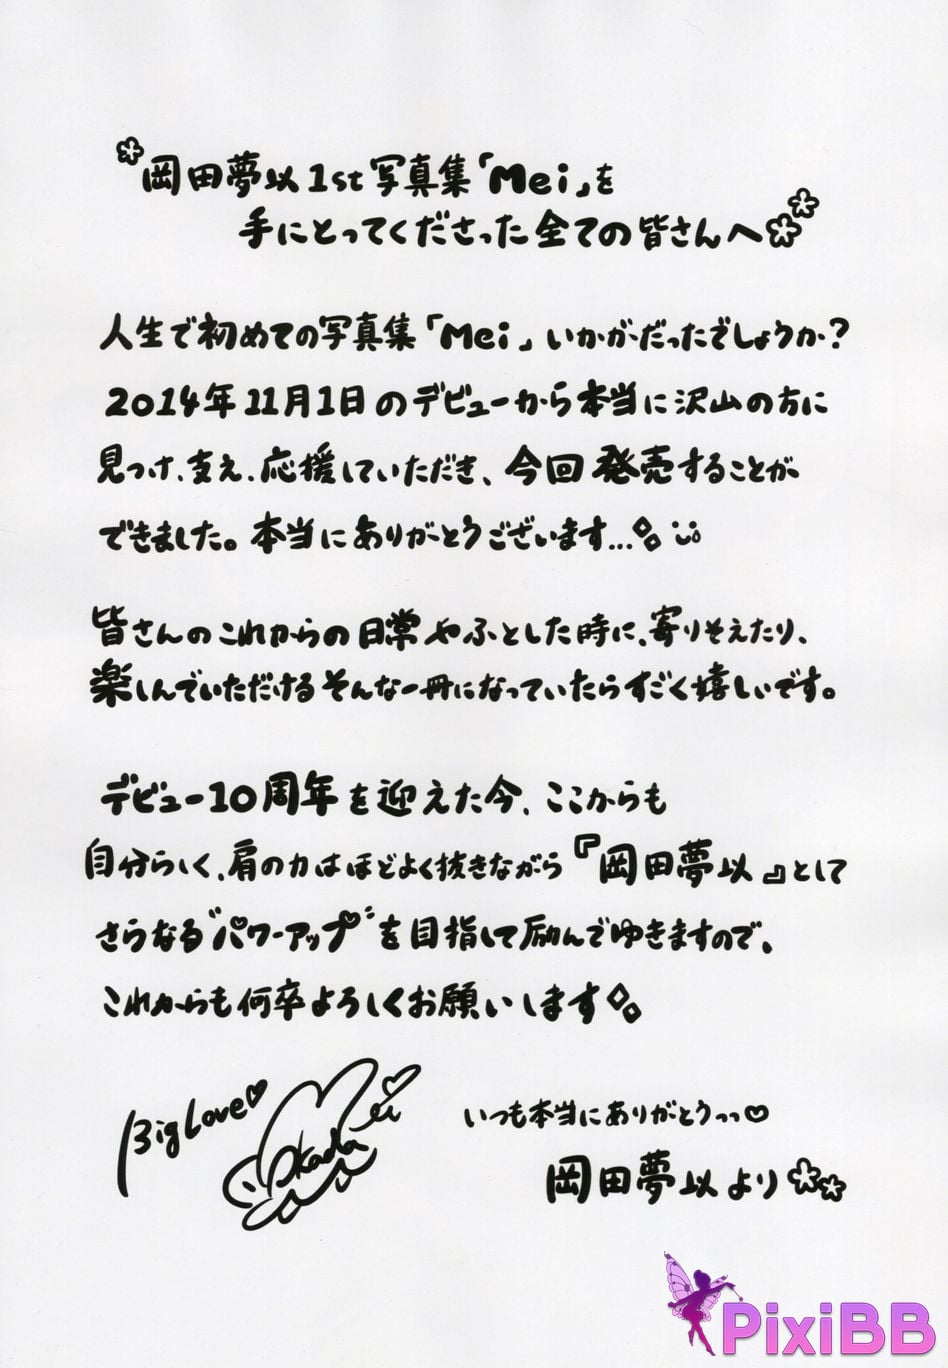 岡田夢以1st写真集「Mei」を
手にとってくださった全ての皆さんへ
人生で初めての写真集「Mei」いかがだったでしょうか?
2014年11月1日のデビューから本当に沢山の方に
見つけ、支え、応援していただき、今回発売することが
できました。本当にありがとうございます...
皆さんのこれからの日常やふとした時に、寄りそえたり、
楽しんでいただけるそんな一冊になっていたらすごく嬉しいです。
デビュー10周年を迎えた今、ここからも
自分らしく、肩の力はほどよく抜きながら『岡田夢以』として
さらなる"パワーアップ"を目指して励んでゆきますので、
これからも何卒よろしくお願いします
Big Love♡
Mei Okada
いつも本当にありがとうっっ♡
岡田夢以より
PixiBB